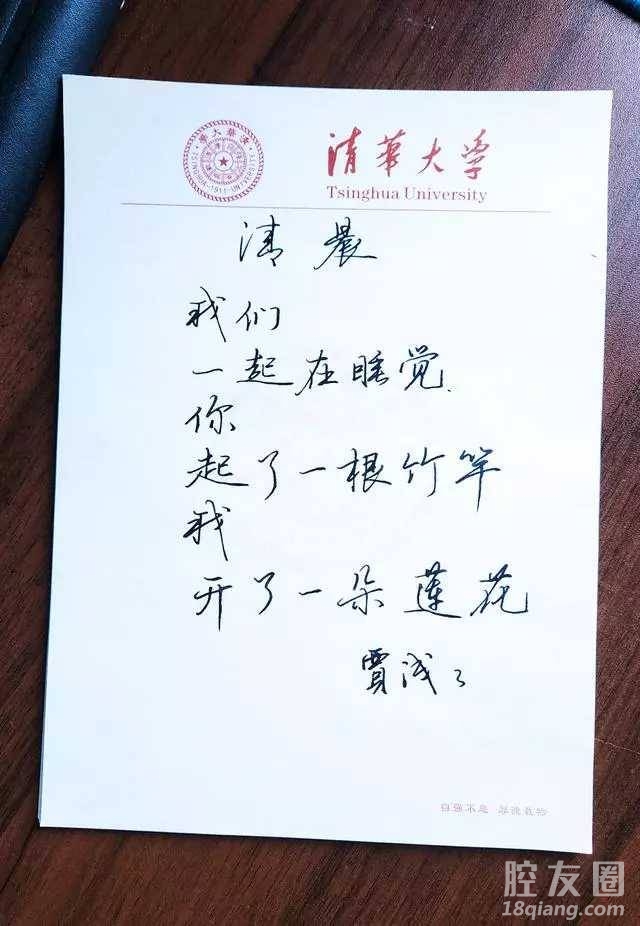 清華大學
TSINGHUA UNIVERSITY
1911
清華大学
Tsinghua University
清晨
我们
一起在睡觉
你
起了一根竹竿
我
开了一朵莲花
贾浅々
自强不息 厚德载物
腔友圈
18qiang.com